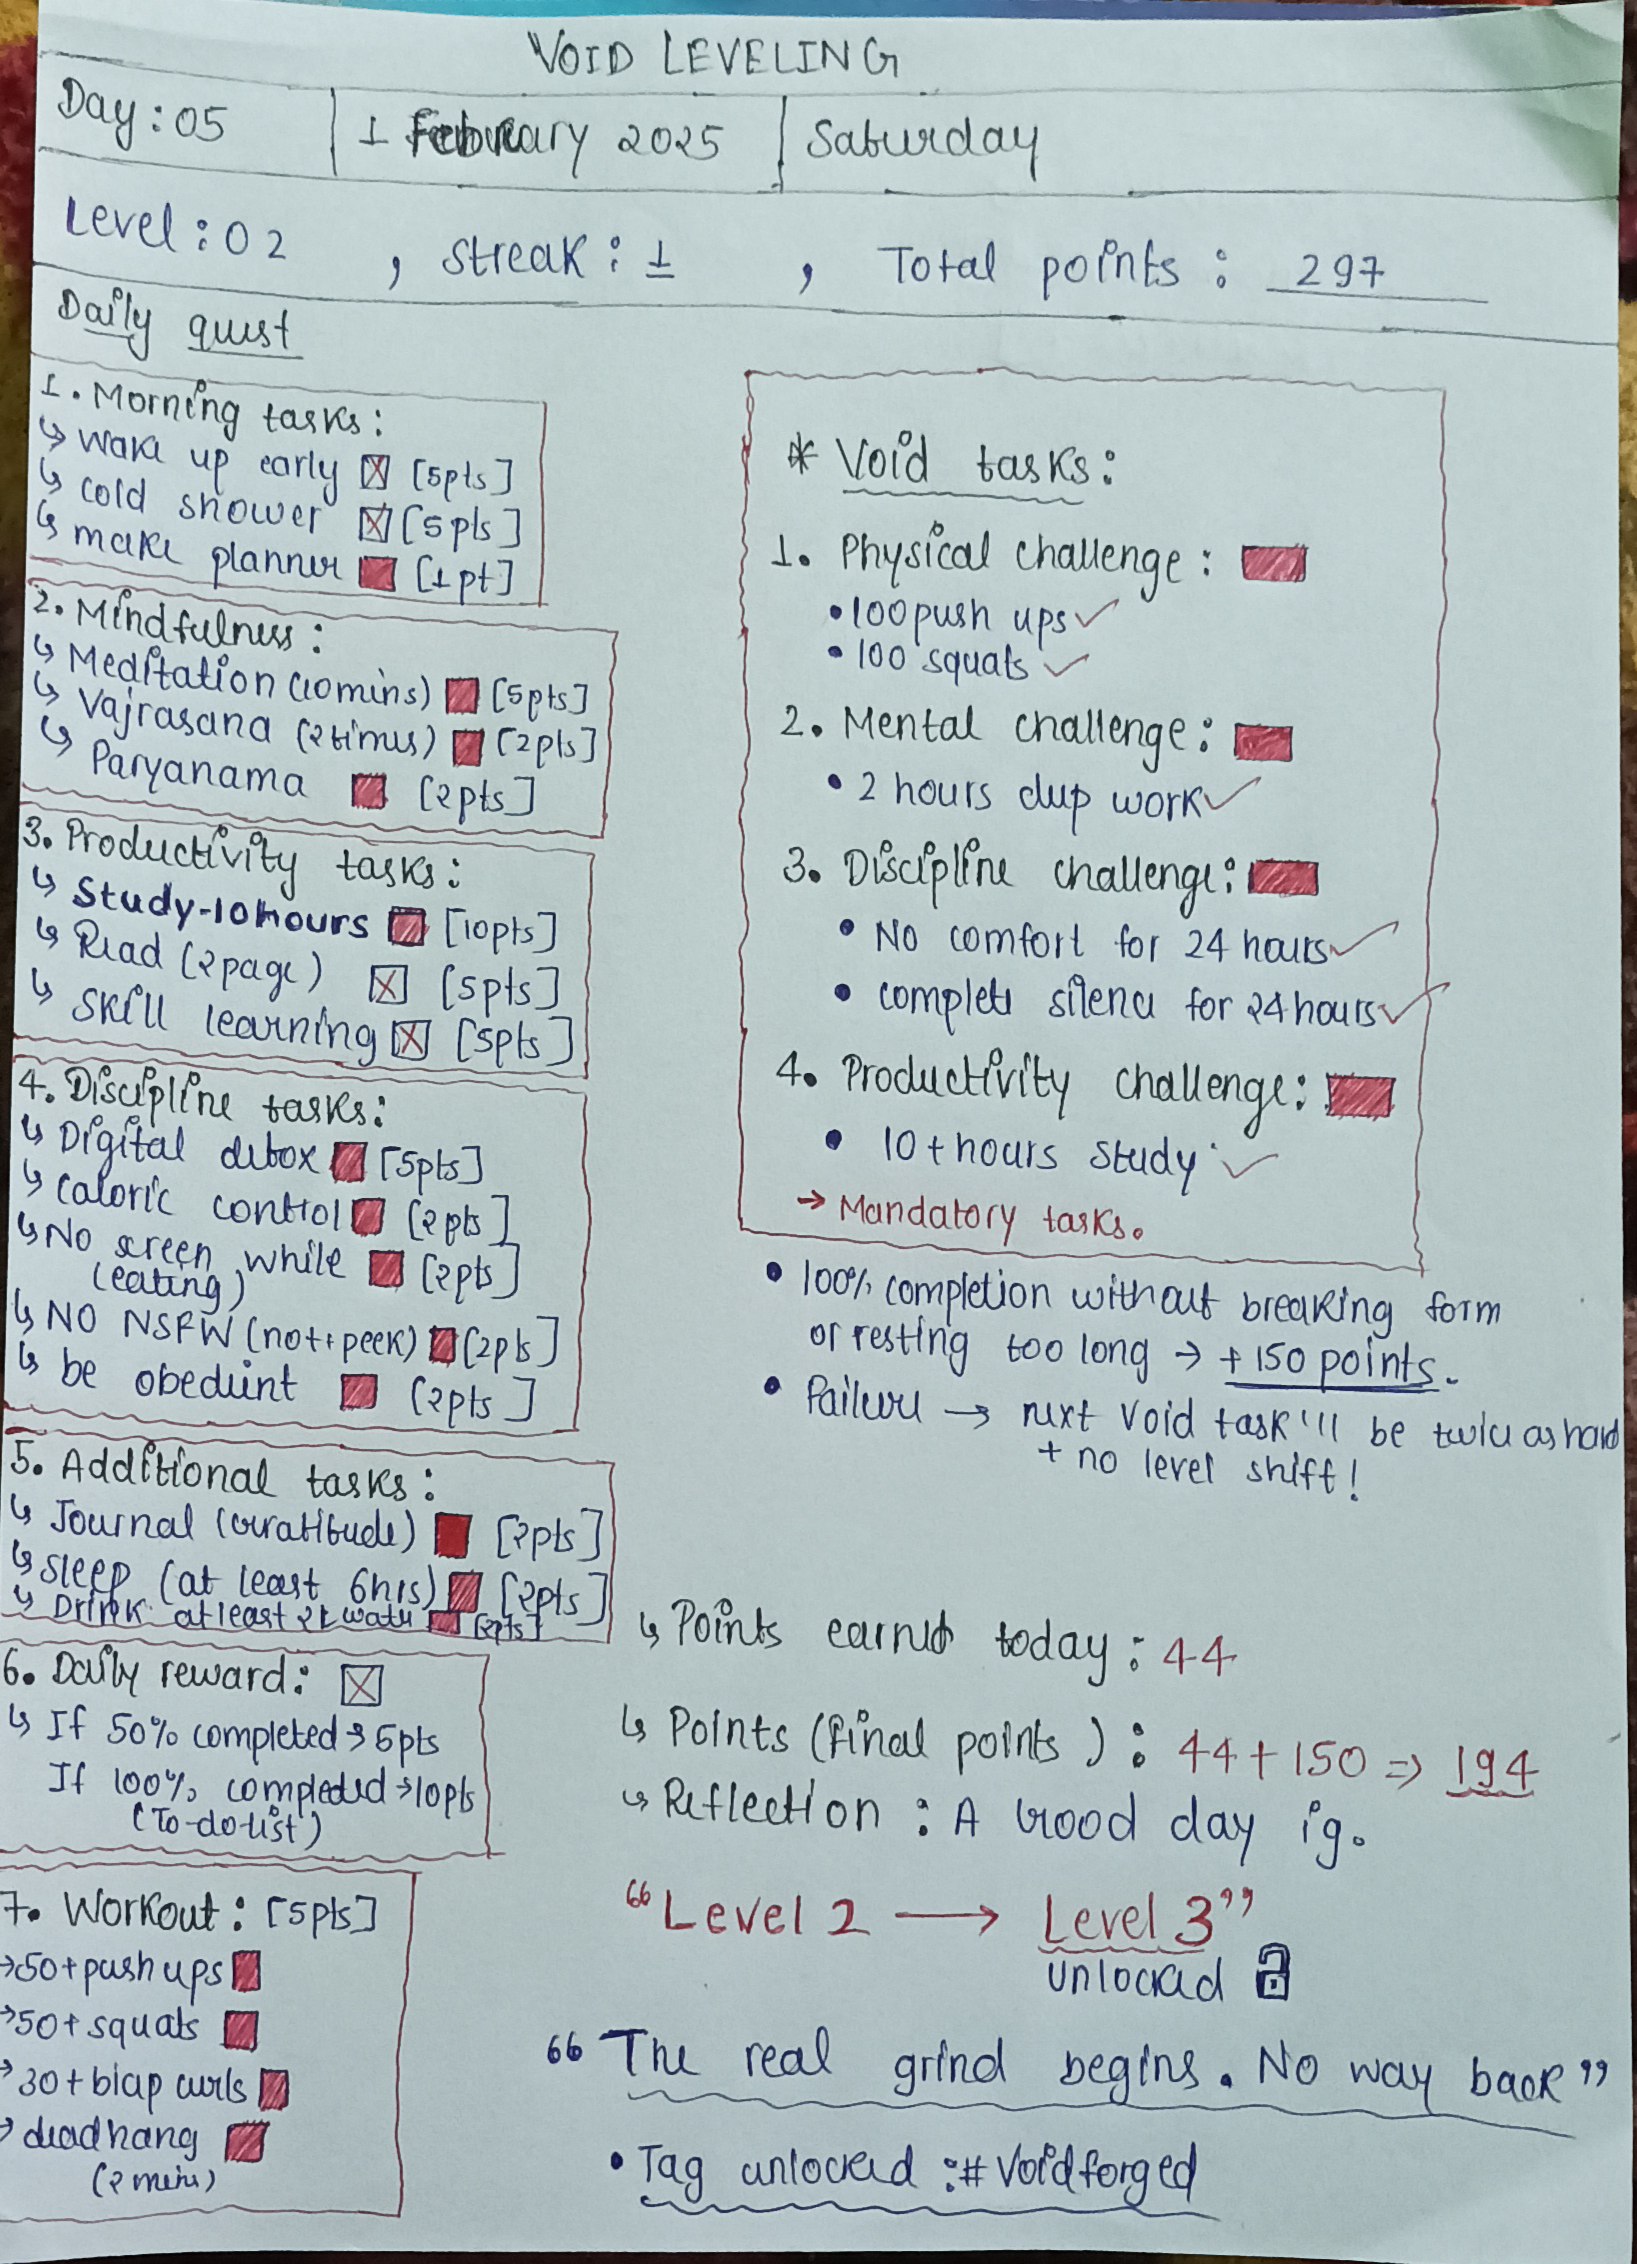 VOID LEVELING
Day : 05 | 1 February 2025 | Saturday
Level : 02 , streak : 1 , Total points : 297
Daily quest
1. Morning tasks :
↳ wake up early ☒ [5pts]
↳ cold shower ☒ [5pts]
↳ make planner [1pt]
2. Mindfulness :
↳ Meditation (10mins) [5pts]
↳ Vajrasana (2times) [2pts]
↳ Paryanama [2pts]
3. Productivity tasks :
↳ Study-10Hours [10pts]
↳ Read (2page) ☒ [5pts]
↳ Skill learning ☒ [5pts]
4. Discipline tasks :
↳ Digital detox [5pts]
↳ caloric control [2pts]
↳ No screen while [2pts]
(eating)
↳ NO NSFW (not 1 peek) [2pts]
↳ be obedient [2pts]
5. Additional tasks :
↳ Journal (Gratitude) [2pts]
↳ Sleep (at least 6hrs) [2pts]
↳ Drink at least 2L water [2pts]
6. Daily reward : ☒
↳ If 50% completed → 5pts
If 100% completed → 10pts
(To-do-list)
7. Workout : [5pts]
→ 50+ push ups
→ 50+ squats
→ 30+ bicep curls
→ dead hang
(2 mins)
* Void tasks :
1. Physical challenge :
• 100 push ups ✓
• 100 squats ✓
2. Mental challenge :
• 2 hours deep work ✓
3. Discipline challenge :
• No comfort for 24 hours ✓
• complete silence for 24 hours ✓
4. Productivity challenge :
• 10+ hours study ✓
→ Mandatory tasks.
• 100% completion without breaking form
or resting too long → +150 points.
• Failure → next void task'll be twice as hard
+ no level shift !
↳ Points earned today : 44
↳ Points (final points) : 44 + 150 => 194
↳ Reflection : A Good day ig.
"Level 2 → Level 3"
unlocked
"The real grind begins. No way back"
• Tag unlocked : # Voidforged